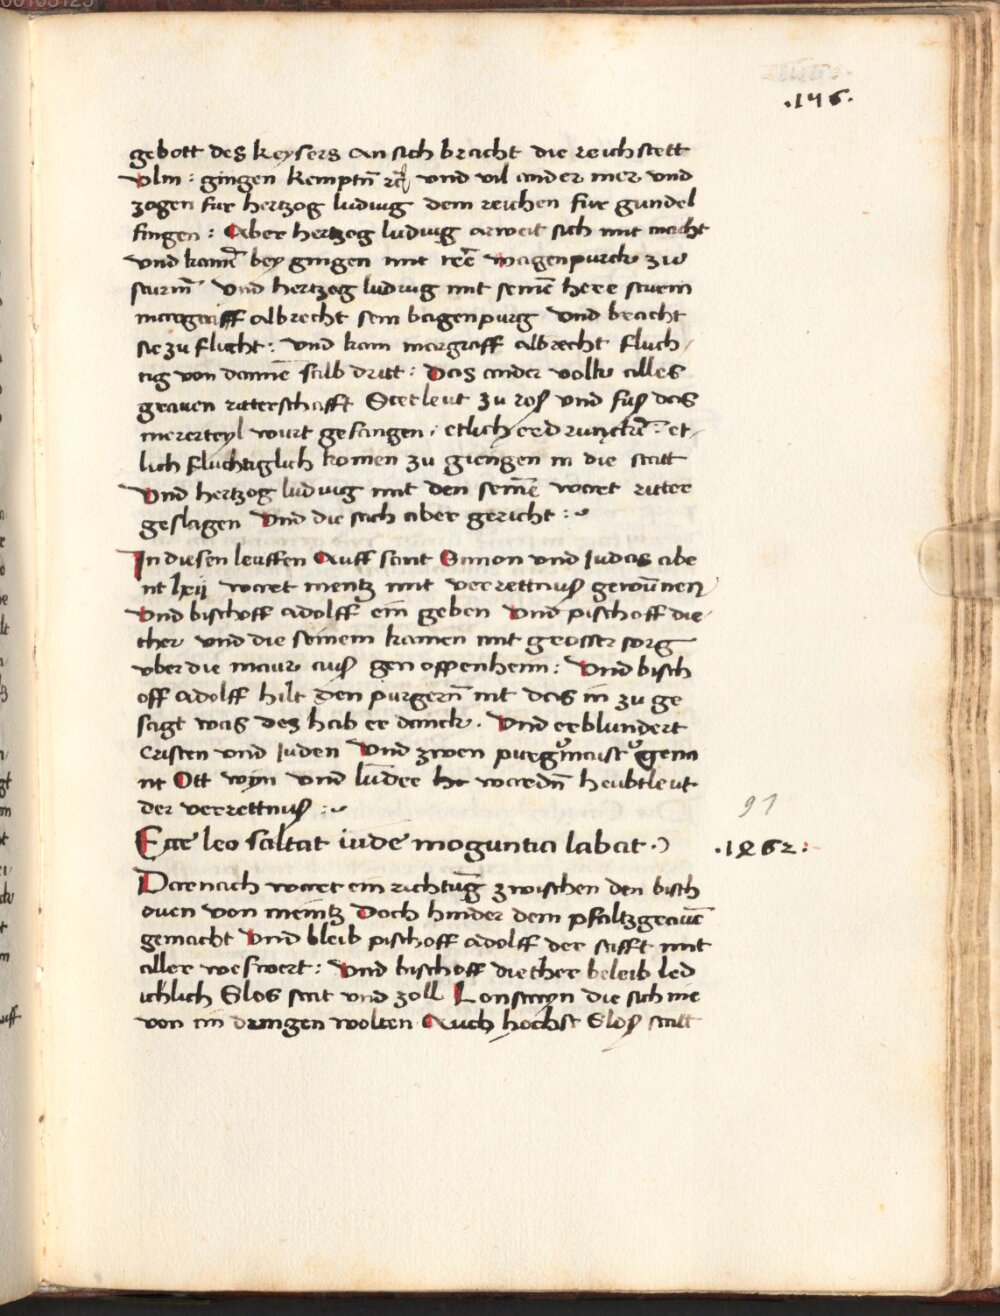 .146.
gebott des keysers an sich bracht die reichstett
vlm : gingen kemptn̄ rc̄ vnd vil ander mer vnd
zogen fur hertzog ludwig dem reichen fur gundel
fingen : Aber hertzog ludwig arweit sich mit macht
vnd kamē bey gingen mit irē wagenpurck zw
sturm̄ vnd hertzog ludwig mit seinē here sturm
marggraff albrecht sein bagenpurg vnd bracht
sie zu flucht : vnd kam margraff albrecht fluch/
tig von dannē salb dritt : Das ander volk alles
graven ritterschafft Stetleut zu roß vnd fuß das
mererteyl wurt gefangen . etlich erdrunckē : et/
lich fluchtiglich komen zu giengen in die statt
Vnd hertzog ludwig mit den seinē wart ritter
geslagen Vnd die sach aber gericht :~
In diesen leuffen Auff sant Simon vnd Judas abe
nt lxii wart mentz mit verrettniß gewun̄nen
Vnd bischoff adolff ein geben Vnd pischoff die/
ther vnd die seinem kamen mit grosser sorg
vber die maur auß gen oppenheim : Vnd bisch
off adolff hilt den purgern̄ nit das in zu ge
sagt was des hab er danck . Vnd erblundert
Cristen vnd Juden Vnd zwen purgmaist gena
nt Ott wyn vnd lūder wardn̄ heubtleut
der verrettniß :~
91
Ecce leo saltat iude moguntia labat .) .1462:
Darnach wart ein richtūg zwischen den bisch
ouen von meintz Doch hinder dem pfaltzgrauē
gemacht Vnd bleib pischoff adolff der stifft mit
aller weswert : Vnd bischoff diether beleib led
icklich Slos stat vnd zoll Lonstayn die sich nie
von im dringen wolten Auch hochst Sloß statt